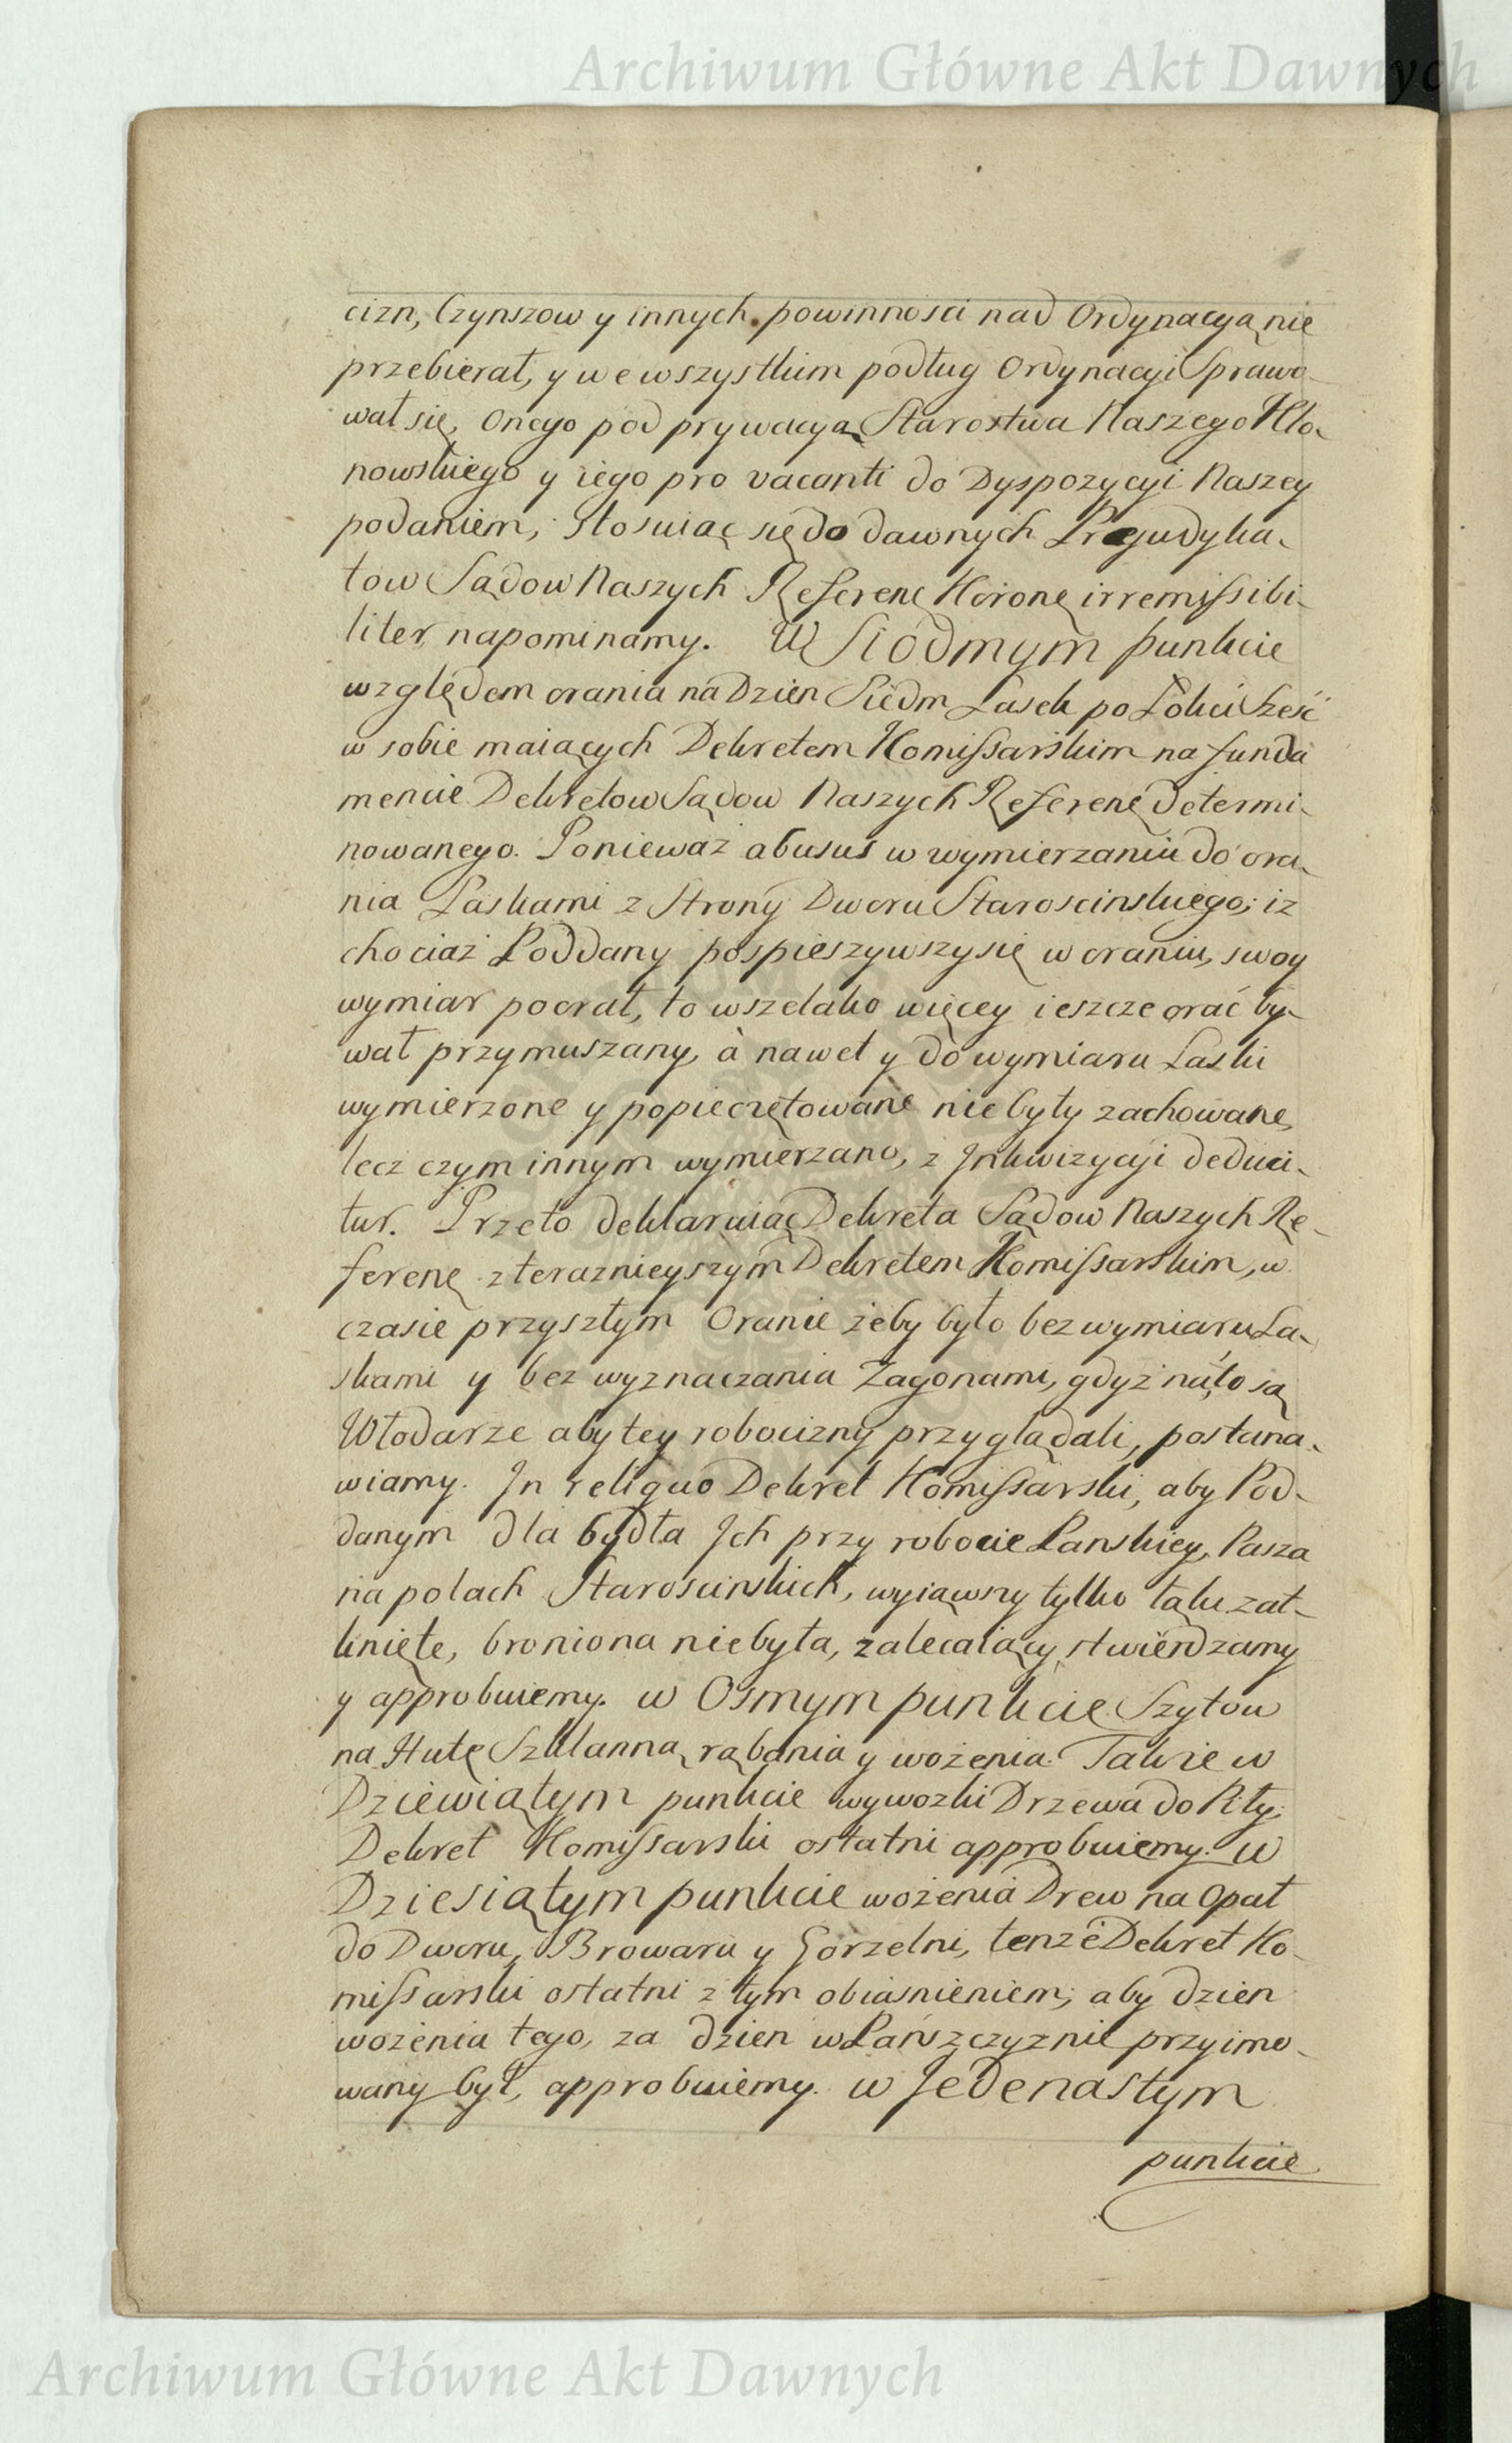 Archiwum Główne Akt Dawnych
cizn, Czynszow y innych powinnosci nad Ordynacyą nie
przebierał, y we wszystkim podług Ordynacyi Sprawo-
wał się, onego pod prywacyą Starostwa Naszego Kło-
nowskiego y iego pro vacanti do Dyspozycyi Naszey
podaniem, Stosuiąc się do dawnych Prejudyka-
tow Sądow Naszych Referen: Koron: irremissibi-
liter napominamy. W Siodmym punkcie
względem orania na Dzien Siedm Lasek po Łokci Sześć
w sobie maiących Dekretem Komissarskim na funda
mencie Dekretow Sądow Naszych Referen: determi-
nowanego. Ponieważ abusus w wymierzaniu do ora-
nia Laskami z Strony Dworu Staroscinskiego; iz
chociaż Poddany pospieszywszy się w oraniu, swoy
wymiar poorał, to wszelako więcey ieszcze orać by-
wał przymuszany, à nawet y do wymiaru Laski
wymierzone y popieczętowane nie były zachowane,
lecz czym innym wymierzano, z Jnkwizycyi deduci-
tur. Przeto deklaruiąc Dekreta Sądow Naszych Re-
feren: z teraznieyszym Dekretem Komissarskim, w
czasie przyszłym Oranie żeby było bez wymiaru La-
skami y bez wyznaczania Zagonami, gdyż na to są
Włodarze aby tey robocizny przyglądali, postana-
wiamy. Jn reliquo Dekret Komissarski, aby Pod-
danym dla bydła Jch przy robocie Panskiey, Pasza
na polach Staroscinskich, wyiąwszy tylko łąki zat-
knięte, broniona niebyła, zalecaiący stwierdzamy
y approbuiemy. w Osmym punkcie Szytow
na Hutę Szklanną rąbania y wożenia. Takie w
Dziewiątym punkcie wywozki Drzewa do Piły;
Dekret Komissarski ostatni approbuiemy. w
Dziesiątym punkcie wożenia Drew na Opał
do Dworu, Browaru y Gorzelni, tenże Dekret Ko-
missarski ostatni z tym obiasnieniem; aby dzien
wożenia tego, za dzien w Pańszczyznie przyimo-
wany był, approbuiemy. w Jedenastym
punkcie
Archiwum Główne Akt Dawnych